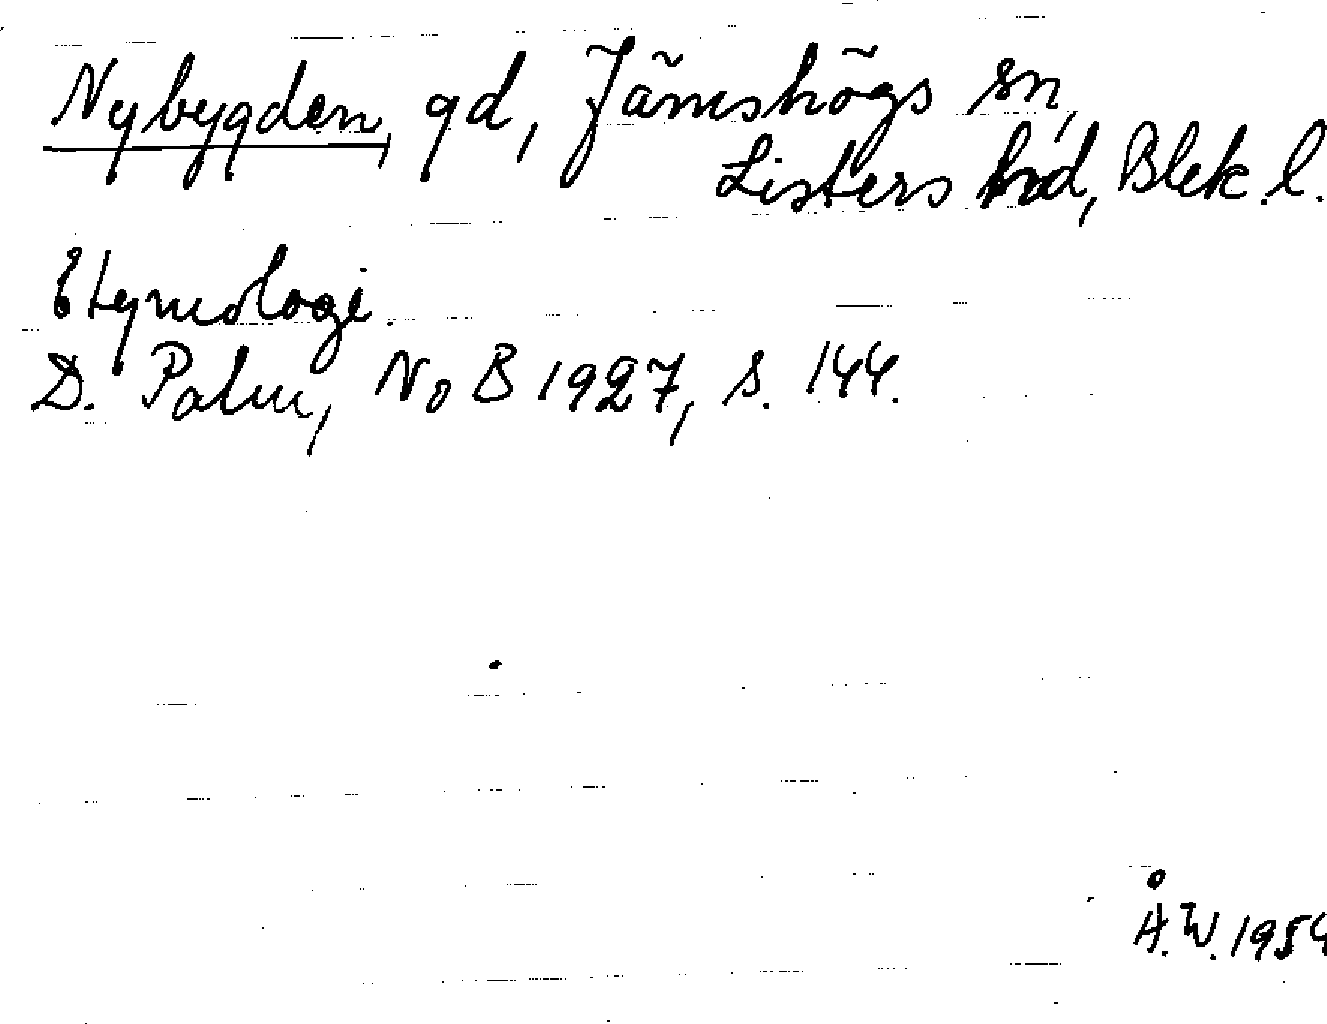 Nybygden, gd, Jämshögs sn,
Listers hd, Blek. l.
Etymologi.
D. Palm, NoB 1927, s. 144.
Å.W. 1954